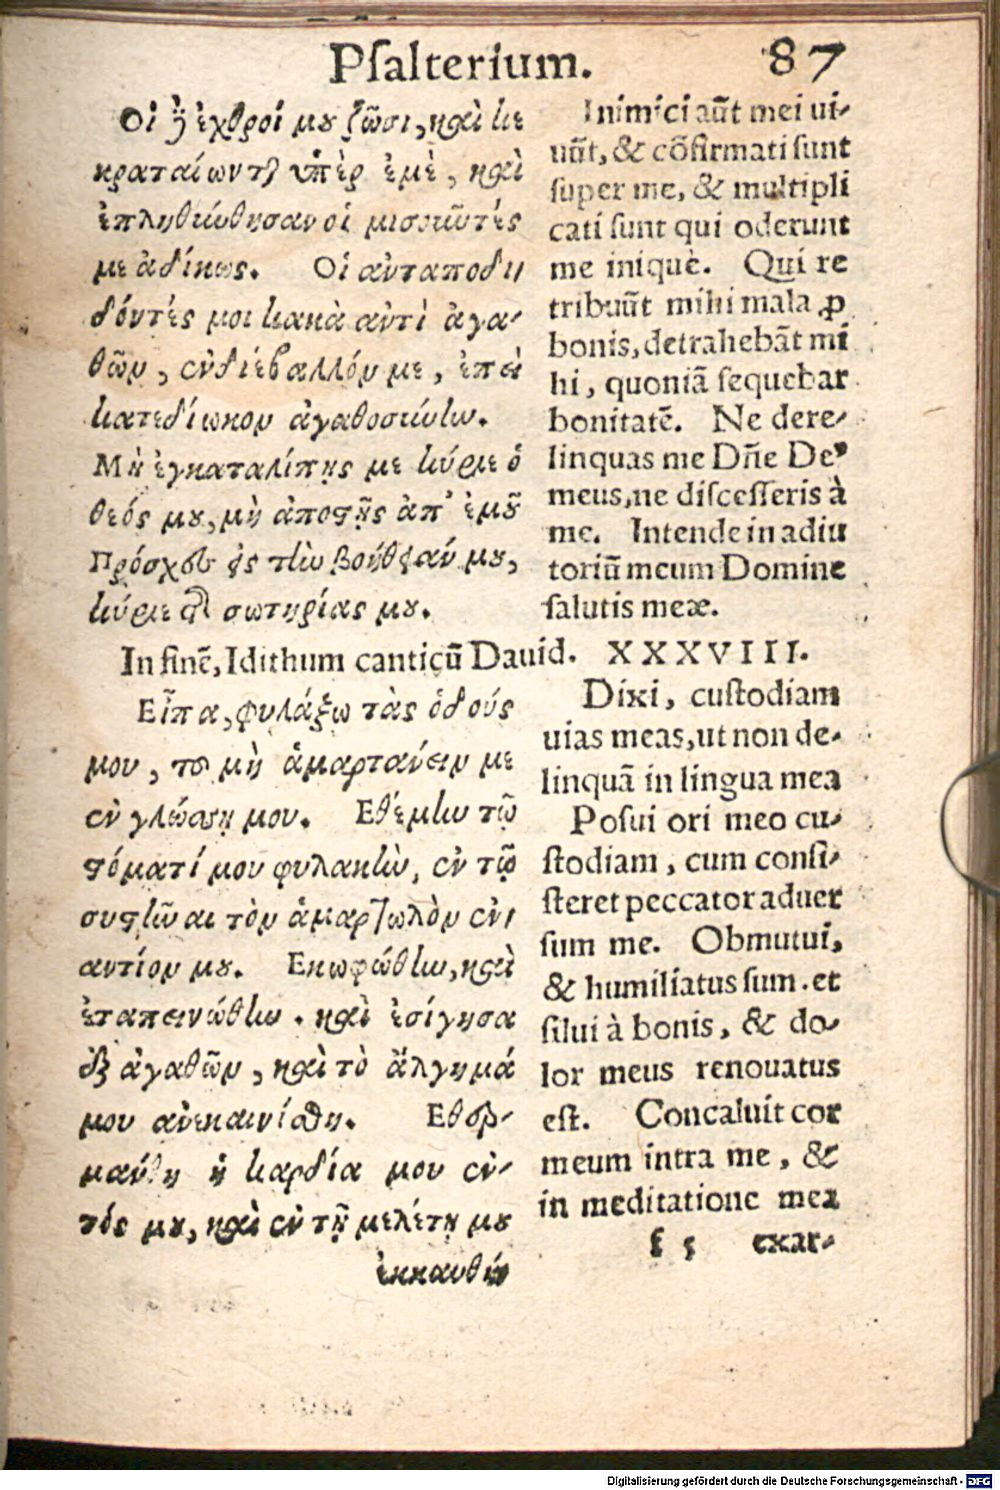 Psalterium. 87
Οἱ δὲ ἐχθροί μου ζῶσι, καὶ κε
κραταίωνται ὑπὲρ ἐμὲ, καὶ
ἐπληθύνθησαν οἱ μισοῦντές
με ἀδίκως. Οἱ ἀνταποδι
δόντές μοι κακὰ ἀντὶ ἀγα-
θῶν, ἐνδιέβαλλόν με, ἐπεὶ
κατεδίωκον ἀγαθοσύνην.
Μὴ ἐγκαταλίπῃς με κύριε ὁ
θεός μου, μὴ ἀποστῇς ἀπ' ἐμοῦ
Πρόσχες εἰς τὴν βοήθειάν μου,
κύριε τῆς σωτηρίας μου.
Inimici aūt mei ui-
uūt, & cōfirmati sunt
super me, & multipli
cati sunt qui oderunt
me iniquè. Qui re
tribuūt mihi mala ꝓ
bonis, detrahebāt mi
hi, quoniā sequebar
bonitatē. Ne dere-
linquas me Dñe De⁹
meus, ne discesseris à
me. Intende in adiu
toriū meum Domine
salutis meæ.
In finē, Idithum canticū Dauid. XXXVIII.
Εἶπα, φυλάξω τὰς ὁδούς
μου, τοῦ μὴ ἁμαρτάνειν με
ἐν γλώσσῃ μου. Εθέμην τῷ
στόματί μου φυλακὴν, ἐν τῷ
συστῆναι τὸν ἁμαρτωλὸν ἐν-
αντίον μου. Εκωφώθην, καὶ
ἐταπεινώθην . καὶ ἐσίγησα
ἐξ ἀγαθῶν, καὶ τὸ ἄλγημά
μου ἀνεκαινίσθη. Εθερ-
μάνθη ἡ καρδία μου ἐν-
τός μου, καὶ ἐν τῇ μελέτῃ μου
ἐκκαυθή
Dixi, custodiam
uias meas, ut non de-
linquā in lingua mea
Posui ori meo cu-
stodiam, cum consi-
steret peccator aduer
sum me. Obmutui,
& humiliatus sum . et
silui à bonis, & do-
lor meus renouatus
est. Concaluit cor
meum intra me, &
in meditatione mea
f 5 exar-
Digitalisierung gefördert durch die Deutsche Forschungsgemeinschaft - DFG